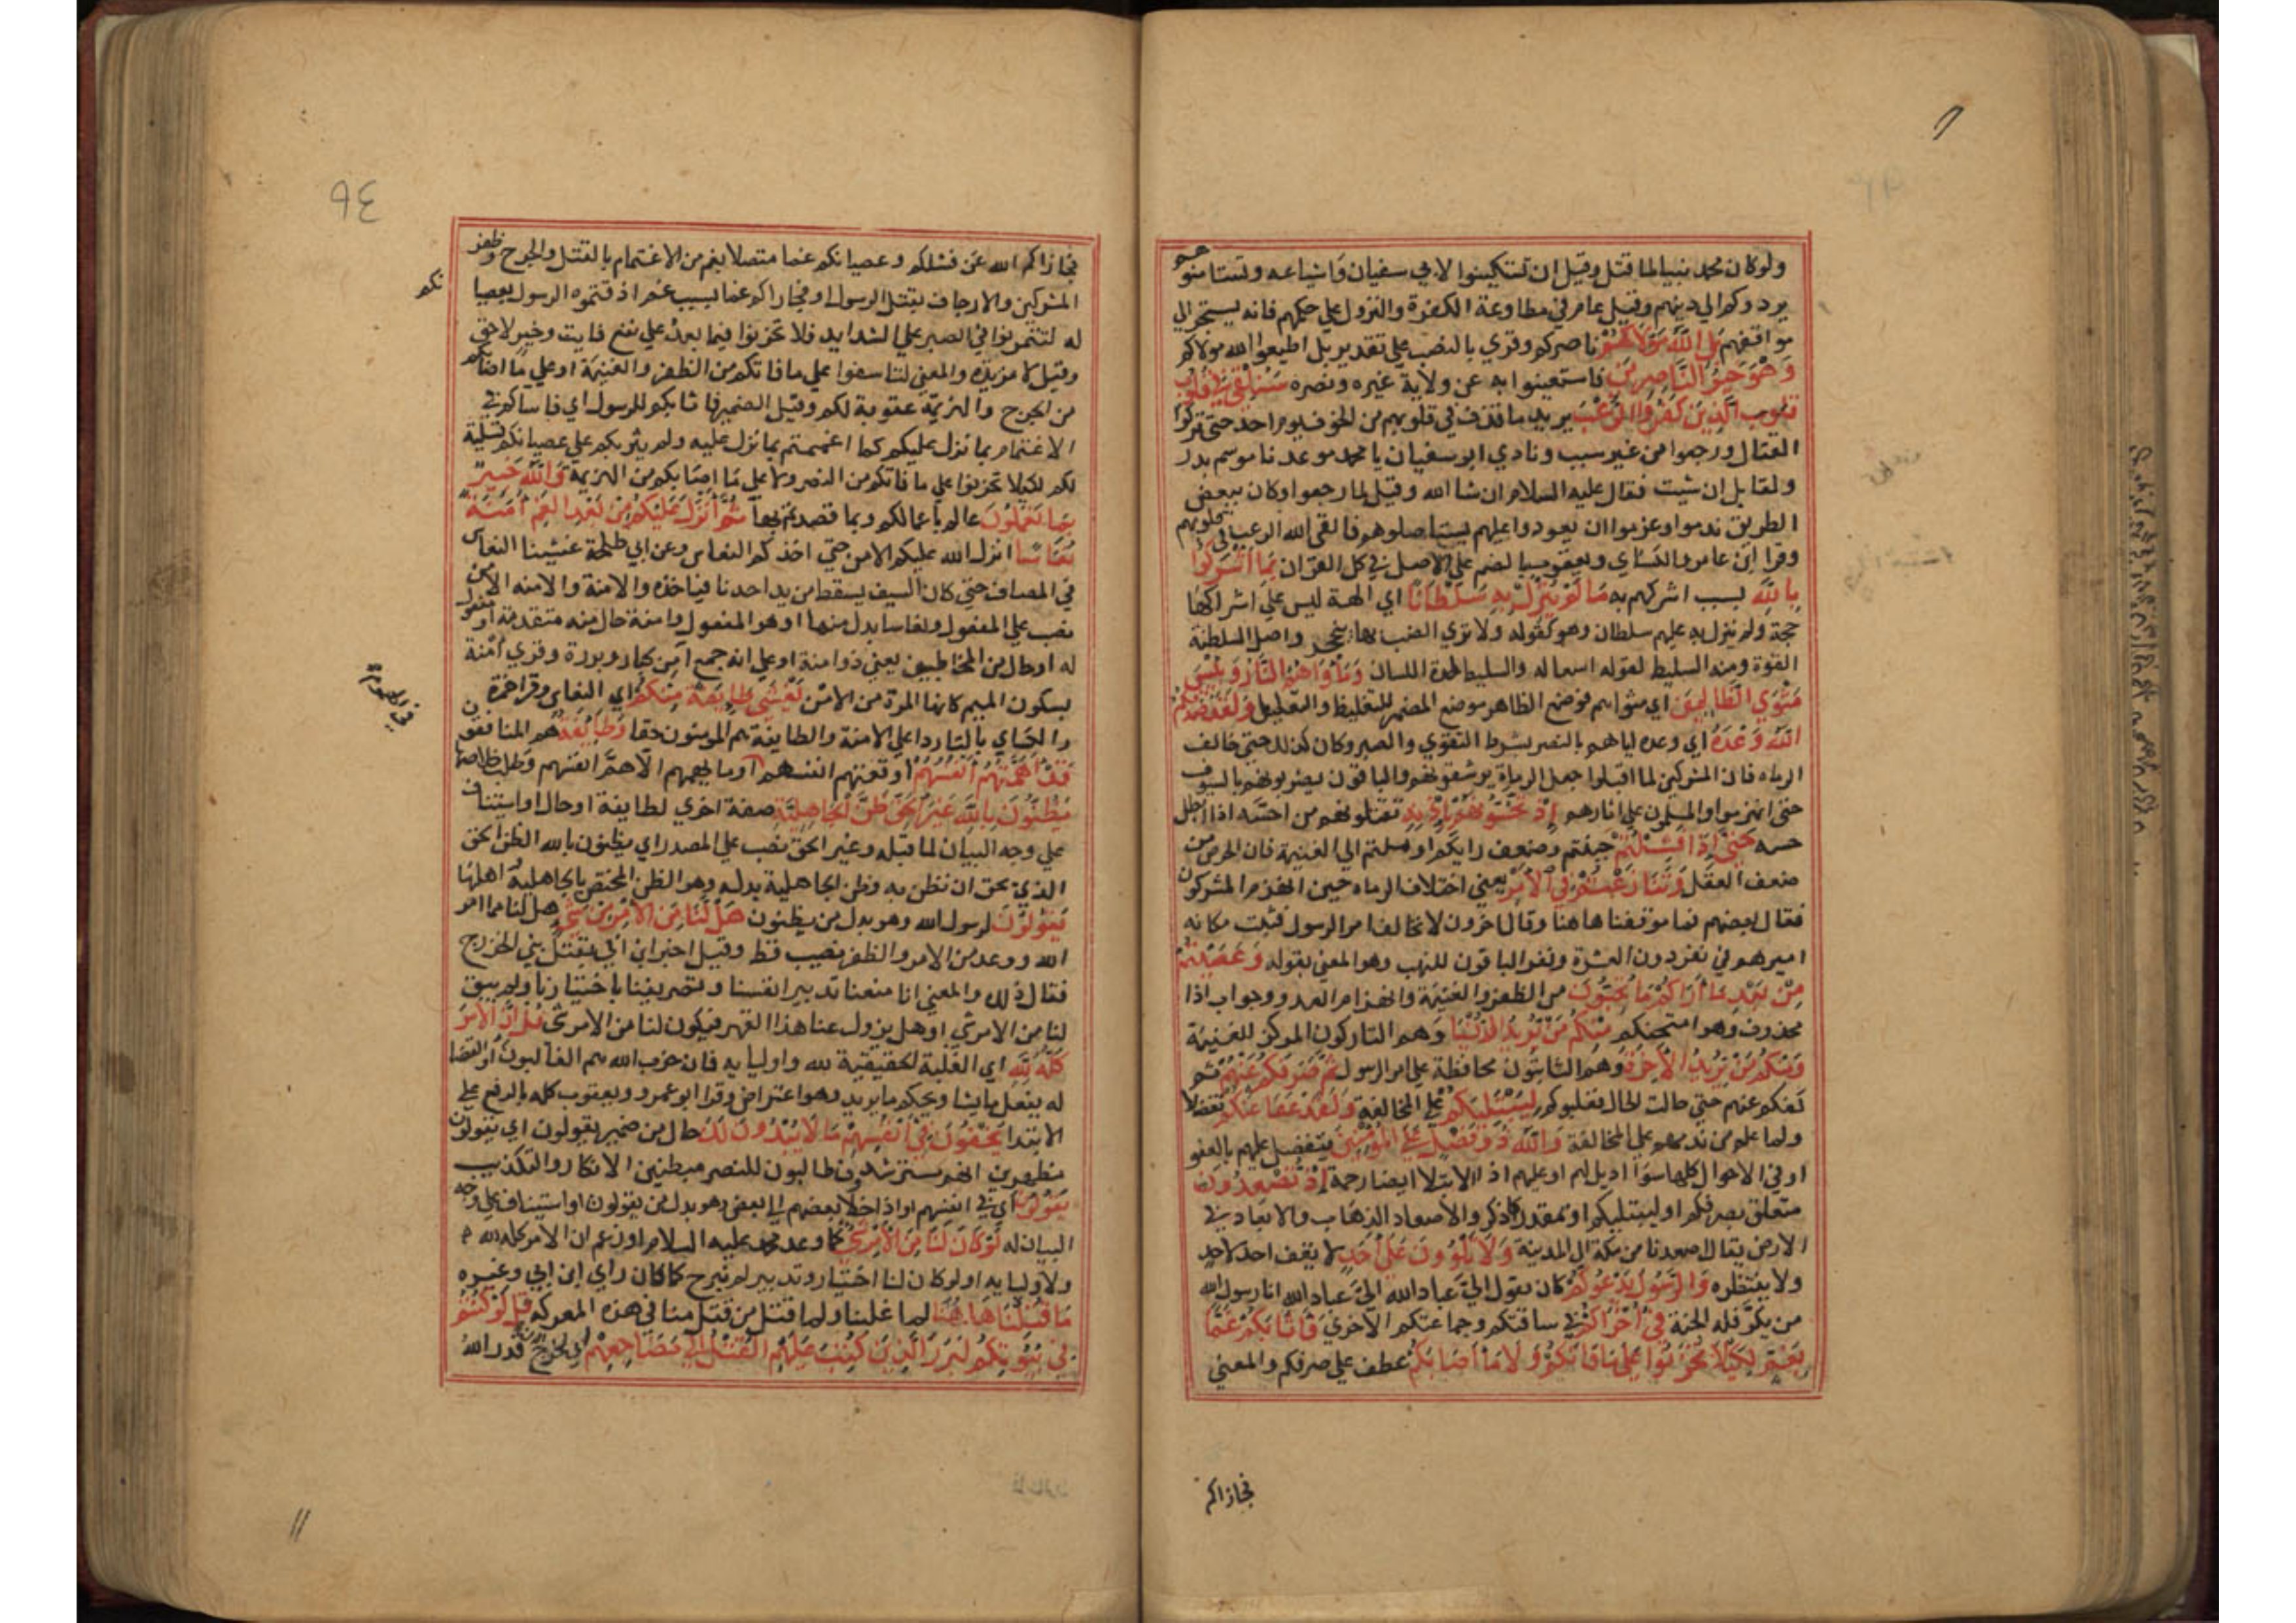 ولو كان محمد نبيا لما قتل وقيل ان تستكينوا لابي سفيان واشياعه وتستامنوهم
يردوكم الي دينهم وقيل عام في مطاوعة الكفرة والنزول علي حكمهم فانه يستجر الي
موافقتهم بَلِ اللَّهُ مَوْلَاكُمْ ناصركم وقري بالنصب علي تقدير بل اطيعوا الله مولاكم
وَهُوَ خَيْرُ النَّاصِرِينَ فاستعينوا به عن ولاية غيره ونصره سَنُلْقِي فِي قُلُوبِ
الَّذِينَ كَفَرُوا الرُّعْبَ يريد ما قذف في قلوبهم من الخوف يوم احد حتي تركوا
القتال ورجعوا من غير سبب ونادي ابو سفيان يا محمد موعدنا موسم بدر
ولقابل ان شيت فقال عليه السلام ان شا الله وقيل لما رجعوا وكان ببعض
الطريق ندموا وعزموا ان يعودوا عليهم ليستاصلوهم فالقي الله الرعب في قلوبهم
وقرا ابن عامر والكساي ويعقوب بالضم علي الاصل في كل القران بِمَا أَشْرَكُوا
بِاللَّهِ بسبب اشراكهم به مَا لَمْ يُنَزِّلْ بِهِ سُلْطَانًا اي الهة ليس علي اشراكها
حجة ولم ينزل به عليهم سلطان وهو كقوله ولا تري الضب بها ينجحر واصل السلطنة
القوة ومنه السليط لقوة اسعاله والسليط لحدة اللسان وَمَأْوَاهُمُ النَّارُ وَبِئْسَ
مَثْوَي الظَّالِمِينَ اي مثواهم فوضع الظاهر موضع المضمر للتغليظ والتعليل وَلَقَدْ صَدَقَكُمُ
اللَّهُ وَعْدَهُ اي وعده اياهم بالنصر بشرط التقوي والصبر وكان كذلك حتي خالف
الرماه فان المشركين لما اقبلوا جعل الرماة يرشقونهم والباقون يضربونهم بالسيوف
حتي انهزموا والمسلمون علي اثارهم إِذْ تَحُسُّونَهُمْ بِإِذْنِهِ تقتلونهم من احسه اذا ابطل
حسه حَتَّي إِذَا فَشِلْتُمْ جبنتم وضعف رايكم او ملتم الي الغنيمة فان الحرص من
ضعف العقل وَتَنَازَعْتُمْ فِي الْأَمْرِ يعني اختلاف الرماه حين انهزم المشركون
فقال بعضهم فما موقفنا هاهنا وقال اخرون لا نخالف امر الرسول فثبت مكانه
اميرهم في نفر دون العشرة ونفر الباقون للنهب وهو المعني بقوله وَعَصَيْتُمْ
مِنْ بَعْدِ مَا أَرَاكُمْ مَا تُحِبُّونَ من الظفر والغنيمة وانهزام العدو وجواب اذا
محذوف وهو امتحنكم مِنْكُمْ مَنْ يُرِيدُ الدُّنْيَا وهم التاركون المركز للغنيمة
وَمِنْكُمْ مَنْ يُرِيدُ الْآخِرَةَ وهم الثابتون محافظة علي امر الرسول ثُمَّ صَرَفَكُمْ عَنْهُمْ ثم
كفكم عنهم حتي حالت الحال فغلبوكم لِيَبْتَلِيَكُمْ علي المخالفة وَلَقَدْ عَفَا عَنْكُمْ تفضلا
ولما علم من ندمهم علي المخالفة وَاللَّهُ ذُو فَضْلٍ عَلَي الْمُؤْمِنِينَ يتفضل عليهم بالعفو
او في الاحوال كلها سوا اديل لهم او عليهم اذ الابتلا ايضا رحمة إِذْ تُصْعِدُونَ
متعلق بصرفكم او ليبتليكم او بمقدر كاذكر والاصعاد الذهاب والابعاد في
الارض يقال صعدنا من مكة الي المدينة وَلَا تَلْوُونَ عَلَي أَحَدٍ لا يقف احد لاحد
ولا ينتظره وَالرَّسُولُ يَدْعُوكُمْ كان يقول اليَّ عباد الله اليَّ عباد الله انا رسول الله
من يكرّ فله الجنة فِي أُخْرَاكُمْ في ساقتكم وجماعتكم الاخري فَأَثَابَكُمْ غَمًّا
بِغَمٍّ لِكَيْلَا تَحْزَنُوا عَلَي مَا فَاتَكُمْ وَلَا مَا أَصَابَكُمْ عطف علي صرفكم والمعني
فجازاكم
٩٤
فجازاكم الله عن فشلكم وعصيانكم غما متصلا بغم من الاغتمام بالقتل والجرح وظفر
المشركين والارجاف بقتل الرسول او فجازاكم غما بسبب غم اذقتموه الرسول بعصيانكم
له لتتمرنوا في الصبر علي الشدايد فلا تحزنوا فيما بعد علي نفع فايت وخير لاحق
وقيل لا مزيدة والمعني لتتاسفوا علي ما فاتكم من الظفر والغنيمة او علي ما اصابكم
من الجرح والهزيمة عقوبة لكم وقيل الضمير في اثابكم للرسول اي فاساكم في
الاغتمام بما نزل عليكم كما اغتممتم بما نزل عليه ولم يثربكم علي عصيانكم تسلية
لكم لكيلا تحزنوا علي ما فاتكم من النصر ولا علي ما اصابكم من الهزيمة وَاللَّهُ خَبِيرٌ
بِمَا تَعْمَلُونَ عالم باعمالكم وبما قصدتم بها ثُمَّ أَنْزَلَ عَلَيْكُمْ مِنْ بَعْدِ الْغَمِّ أَمَنَةً
نُعَاسًا انزل الله عليكم الامن حتي اخذكم النعاس وعن ابي طلحة غشينا النعاس
في المصاف حتي كان السيف يسقط من يد احدنا فياخذه والامنة والامنه الامن
نصب علي المفعول ونعاسا بدل منها او هو المفعول وامنة حال منه متقدمة او مفعول
له او حال من المخاطبين يعني ذوي امنة او علي انه جمع امن كبار وبررة وقري أمْنة
بسكون الميم كانها المرة من الامن يَغْشَي طَائِفَةً مِنْكُمْ اي النعاس وقرا حمزة
والكساي بالتا ردا علي الامنة والطايفة هم المومنون حقا وَطَائِفَةٌ هم المنافقون
قَدْ أَهَمَّتْهُمْ أَنْفُسُهُمْ اوقعتهم انفسهم او ما يهمهم الا همّ انفسهم وطلب خلاصها
يَظُنُّونَ بِاللَّهِ غَيْرَ الْحَقِّ ظَنَّ الْجَاهِلِيَّةِ صفة اخري لطايفة او حال او استيناف
علي وجه البيان لما قبله وغير الحق نصب علي المصدر اي يظنون بالله الظن الحق
الذي يحق ان يظن به وظن الجاهلية بدله وهو الظن المختص بالجاهلية اهلها
يَقُولُونَ لرسول الله وهو بدل من يظنون هَلْ لَنَا مِنَ الْأَمْرِ مِنْ شَيْءٍ هل لنا مما امر
الله ووعد من الامر والظفر نصيب قط وقيل اخبر ابن ابي بقتل بني الخزرج
فقال ذلك والمعني انا منعنا تدبير انفسنا وتصريفنا باختيارنا ولم يبق
لنا من الامر شي او هل يزول عنا هذا القهر فيكون لنا من الامر شي قُلْ إِنَّ الْأَمْرَ
كُلَّهُ لِلَّهِ اي الغلبة الحقيقية لله واوليايه فان حزب الله هم الغالبون او القضا
له يفعل ما يشا ويحكم ما يريد وهو اعتراض وقرا ابو عمرو ويعقوب كله بالرفع علي
الابتدا يُخْفُونَ فِي أَنْفُسِهِمْ مَا لَا يُبْدُونَ لَكَ حال من ضمير يقولون اي يقولون
مظهرين انهم مسترشدون طالبون للنصر مبطنين الانكار والتكذيب
يَقُولُونَ اي في انفسهم او اذا خلا بعضهم الي بعض وهو بدل من يقولون او استيناف علي وجه
البيان له لَوْ كَانَ لَنَا مِنَ الْأَمْرِ شَيْءٌ كما وعد محمد عليه السلام او زعم ان الامر كله لله
ولاوليايه او لو كان لنا اختيار وتدبير لم نبرح كما كان راي ابن ابي وغيره
مَا قُتِلْنَا هَاهُنَا لما غلبنا ولما قتل من قتل منا في هذه المعركة قُلْ لَوْ كُنْتُمْ
فِي بُيُوتِكُمْ لَبَرَزَ الَّذِينَ كُتِبَ عَلَيْهِمُ الْقَتْلُ إِلَي مَضَاجِعِهِمْ اي لخرج الذين قدر الله